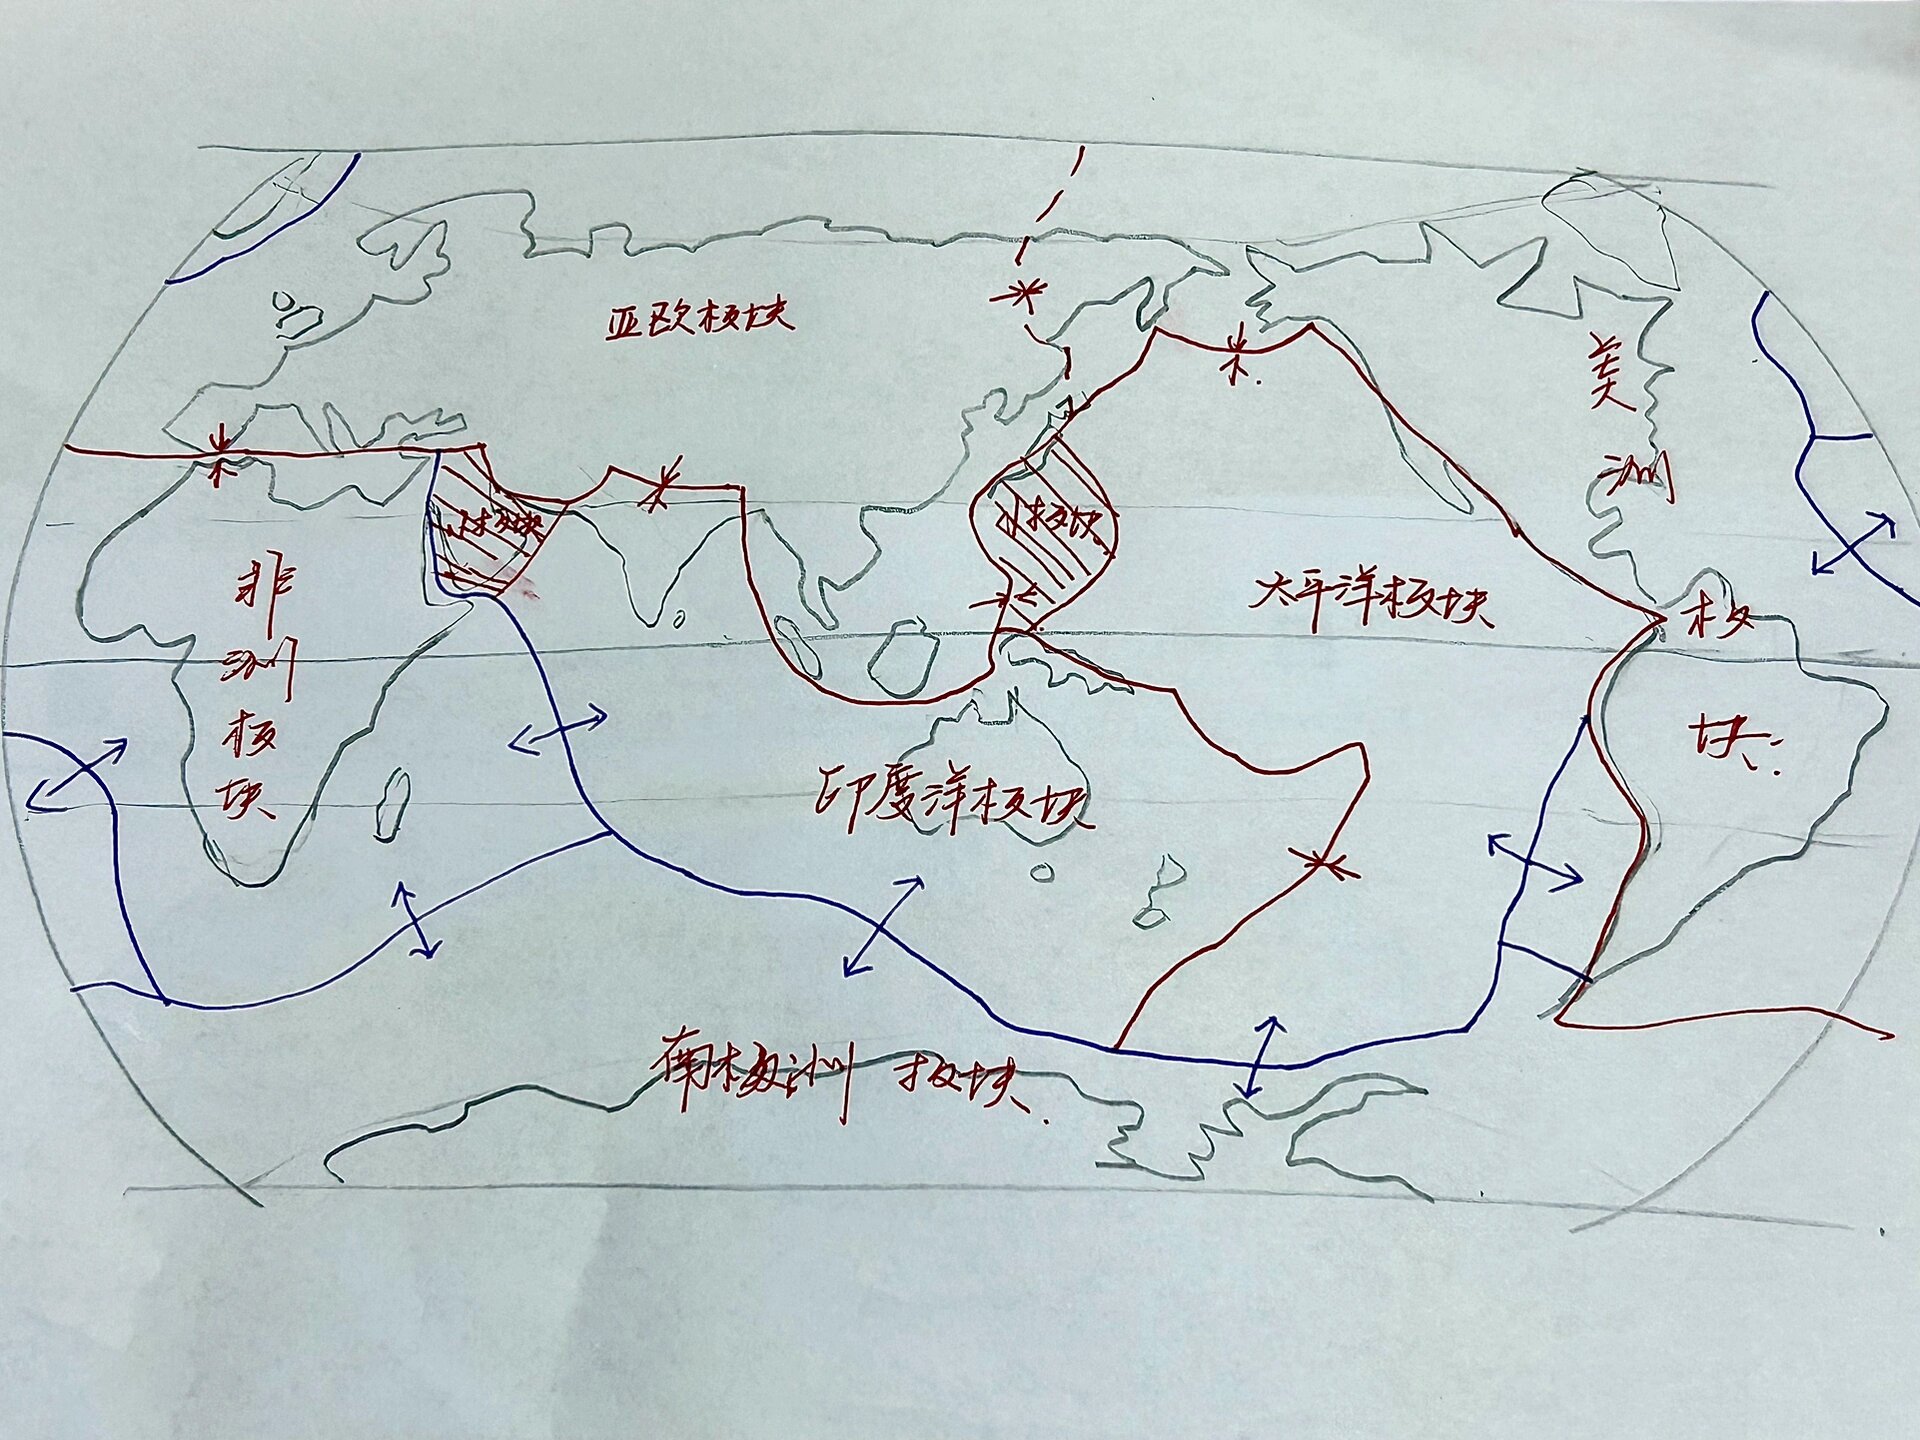 亚欧板块
美洲板块
小板块
小板块
非洲板块
太平洋板块
印度洋板块
南极洲板块